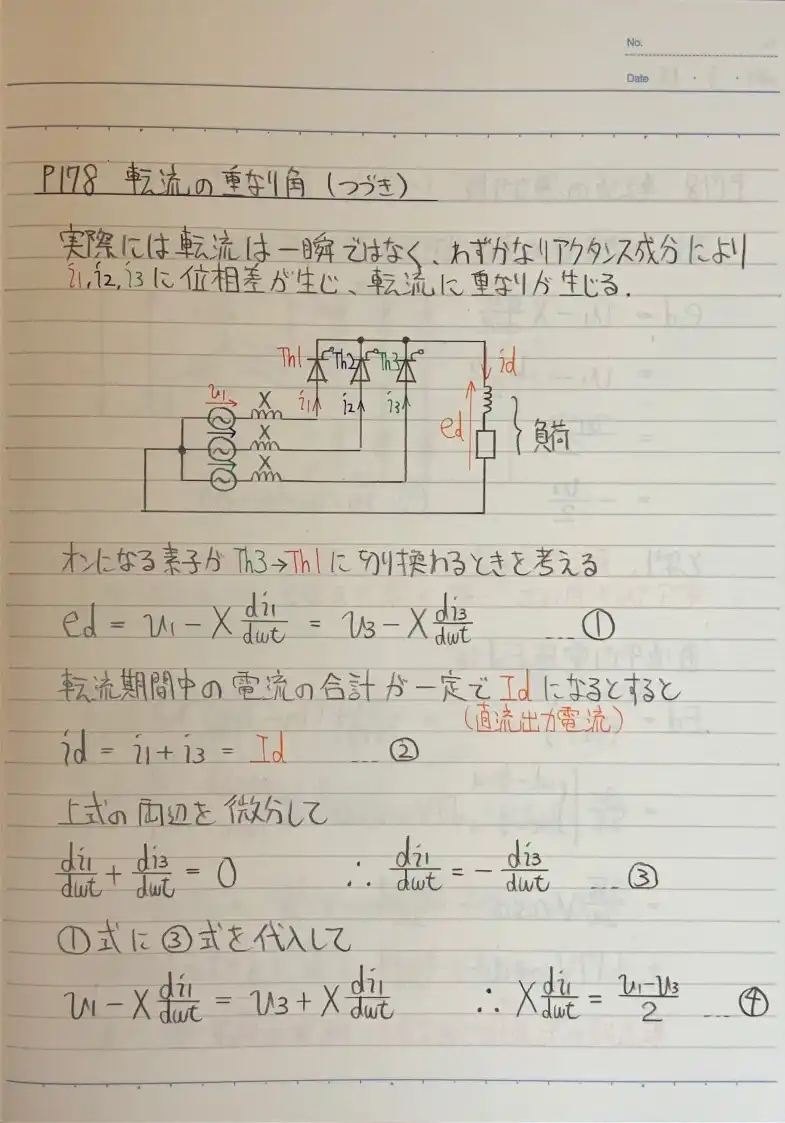 No.
Date
P178 転流の重なり角 (つづき)
実際には転流は一瞬ではなく、わずかなリアクタンス成分により
i1, i2, i3 に位相差が生じ、転流に重なりが生じる.
Th1 Th2 Th3 id
u1 X i1 i2 i3
X ed 負荷
X
オンになる素子が Th3→Th1 に切り換わるときを考える
ed = u1 - X di1/dwt = u3 - X di3/dwt ... ①
転流期間中の電流の合計が一定で Id になるとすると
(直流出力電流)
id = i1 + i3 = Id ... ②
上式の両辺を微分して
di1/dwt + di3/dwt = 0 ∴ di1/dwt = - di3/dwt ... ③
①式に③式を代入して
u1 - X di1/dwt = u3 + X di1/dwt ∴ X di1/dwt = u1-u3/2 ... ④